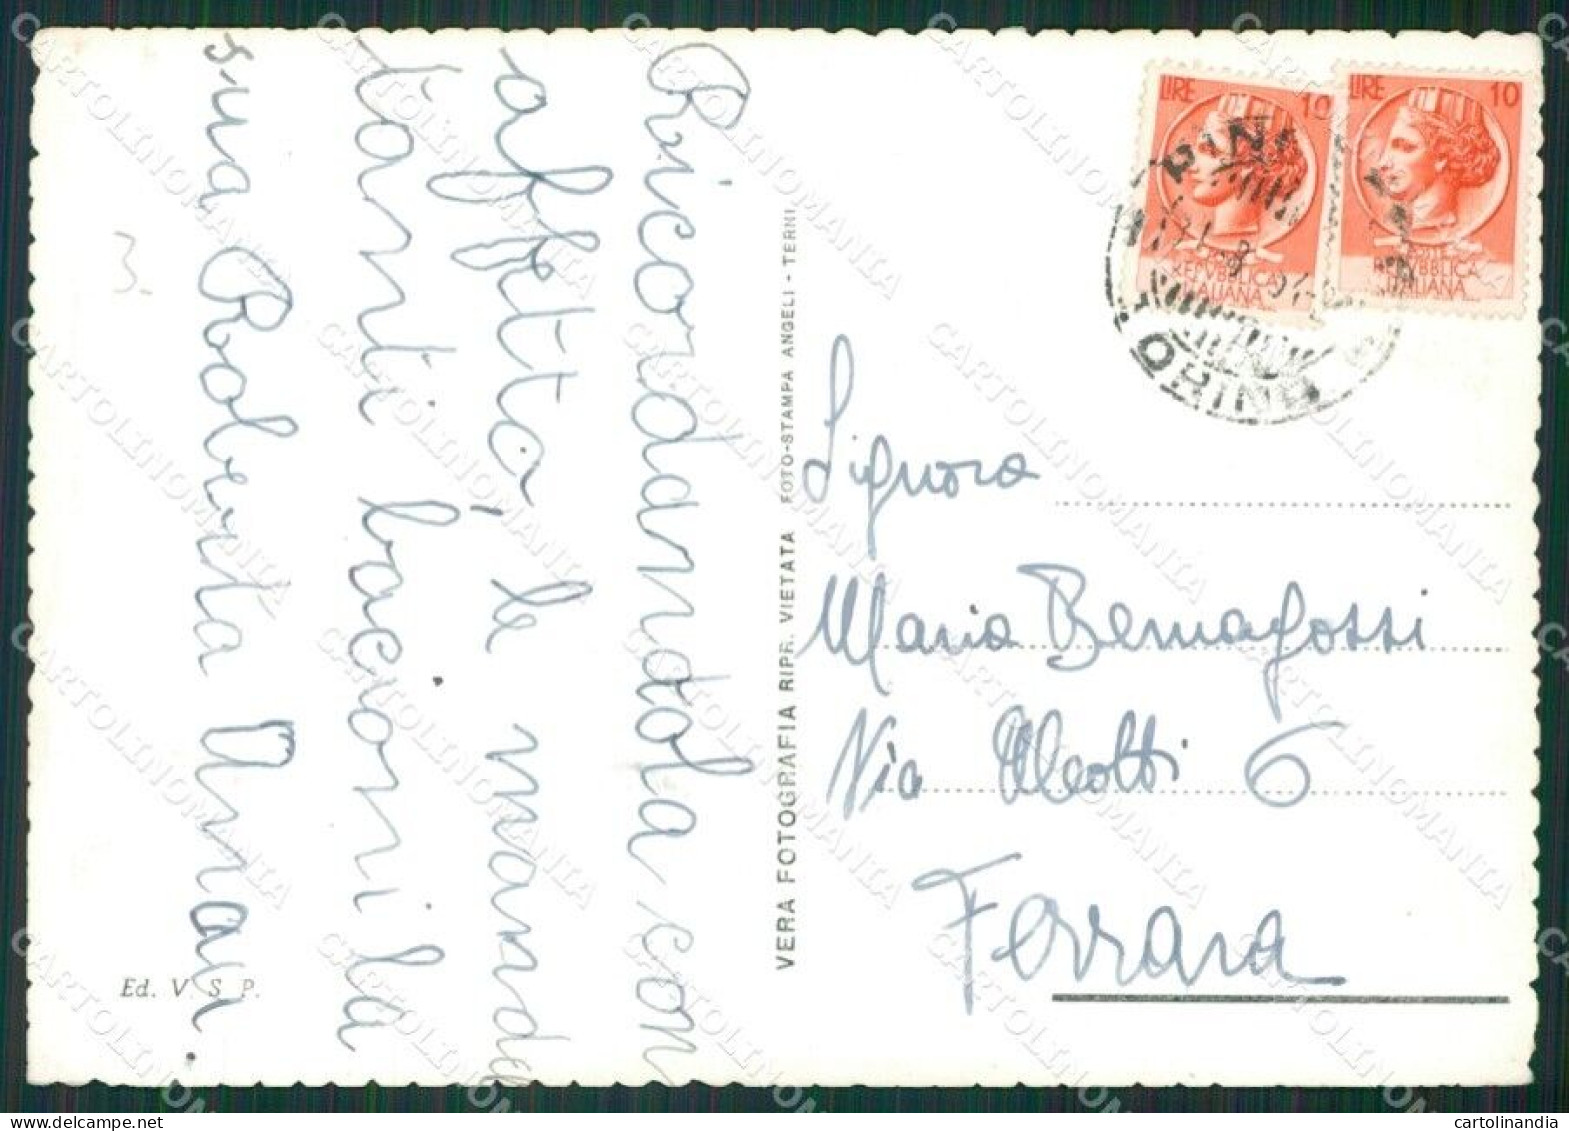 Ricordandola con
affetto, le manda
tanti bacioni la
sua Roberta Annar.
3.
Ed. V. S. P.
VERA FOTOGRAFIA RIPR. VIETATA FOTO-STAMPA ANGELI - TERNI
LIRE 10
REPVBBLICA
ITALIANA
LIRE 10
REPVBBLICA
ITALIANA
TORINO
Signora
Maria Bernagossi
Via Aleotti 6
Ferrara
CARTOLINOMANIA
cartolinandia